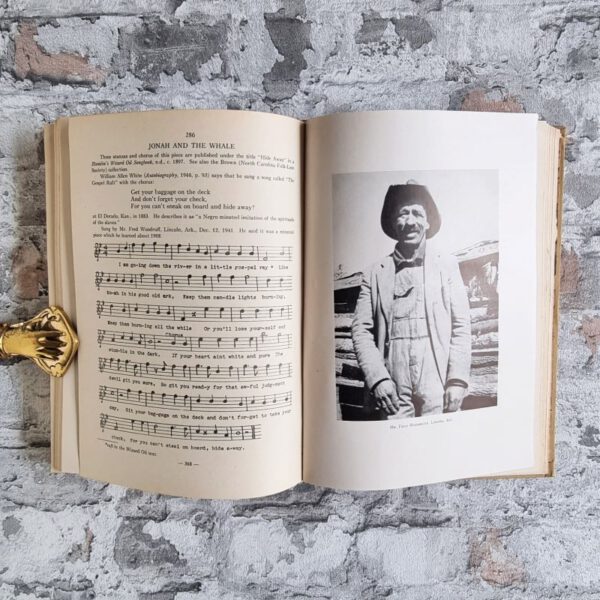 286
JONAH AND THE WHALE
Three stanzas and chorus of this piece are published under the title "Hide Away" in a
Hamlin's Wizard Oil Songbook, n.d., c. 1897. See also the Brown (North Carolina Folk-Lore
Society) collection.
William Allen White (Autobiography, 1946, p. 93) says that he sang a song called "The
Gospel Raft" with the chorus:
Get your baggage on the deck
And don't forget your check,
For you can't sneak on board and hide away!
at El Dorado, Kan., in 1883. He describes it as "a Negro minstrel imitation of the spirituals
of the slaves."
Sung by Mr. Fred Woodruff, Lincoln, Ark., Dec. 12, 1941. He said it was a minstrel
piece which he learned about 1908.
I am go-ing down the riv-er in a lit-tle gos-pel ray * Like
No-ah in his good old ark. Keep them can-dle lights burn-ing,
Keep them burn-ing all the while Or you'll lose your-self and
Chorus
stum-ble in the dark. If your heart aint white and pure The
devil git you sure, So git you read-y for that aw-ful judg-ment
day. Git your bag-gage on the deck and don't for-get to take your
check, For you can't steal on board, hide a-way.
in the Wizard Oil text.
— 368 —
Lincoln, Ark.